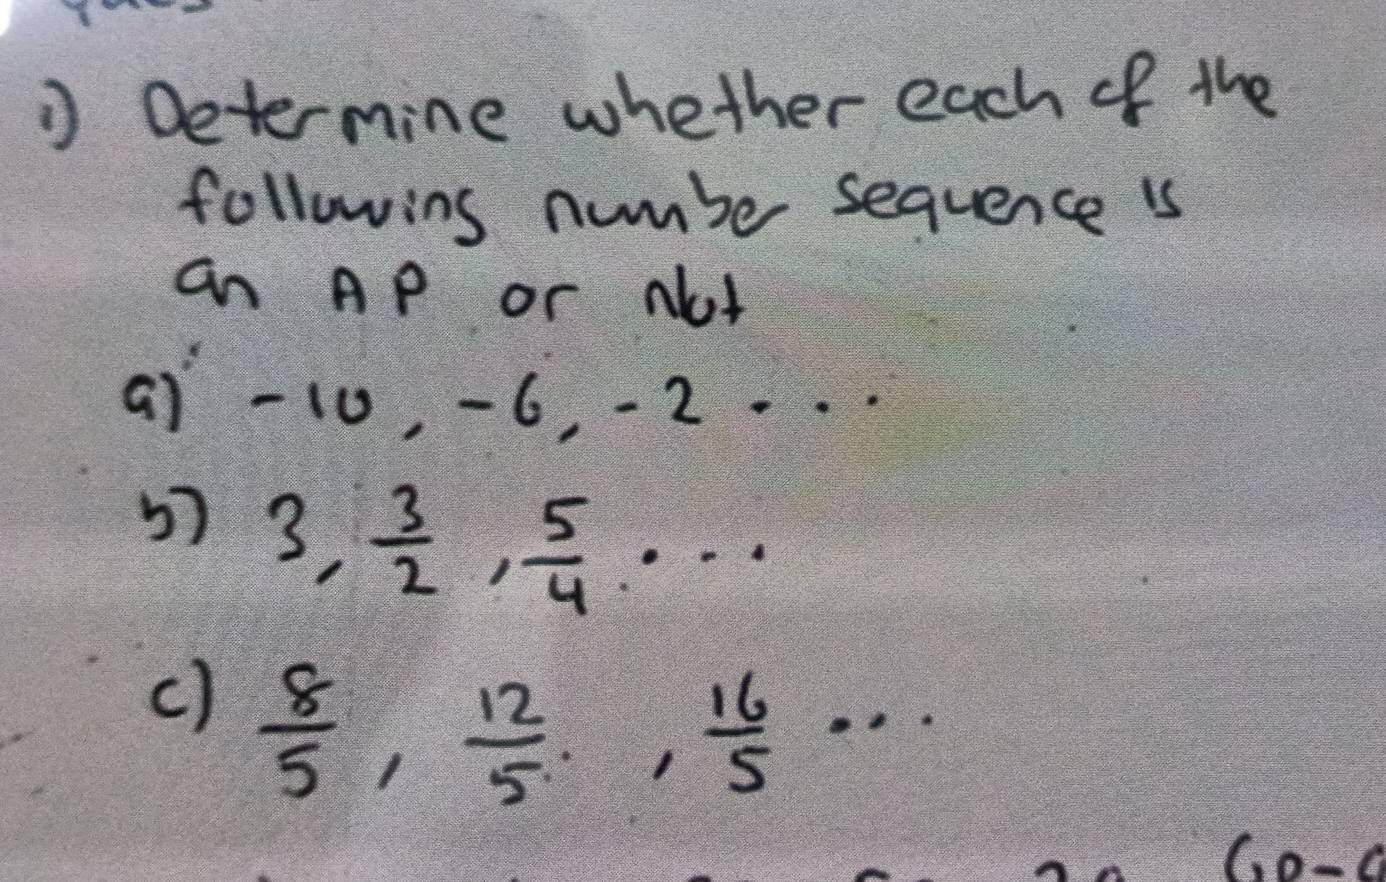 1) Determine whether each of the
following number sequence is
an AP or Not
a) -10, -6, -2 ...
b) 3, 3/2, 5/4 ...
c) 8/5, 12/5, 16/5 ...